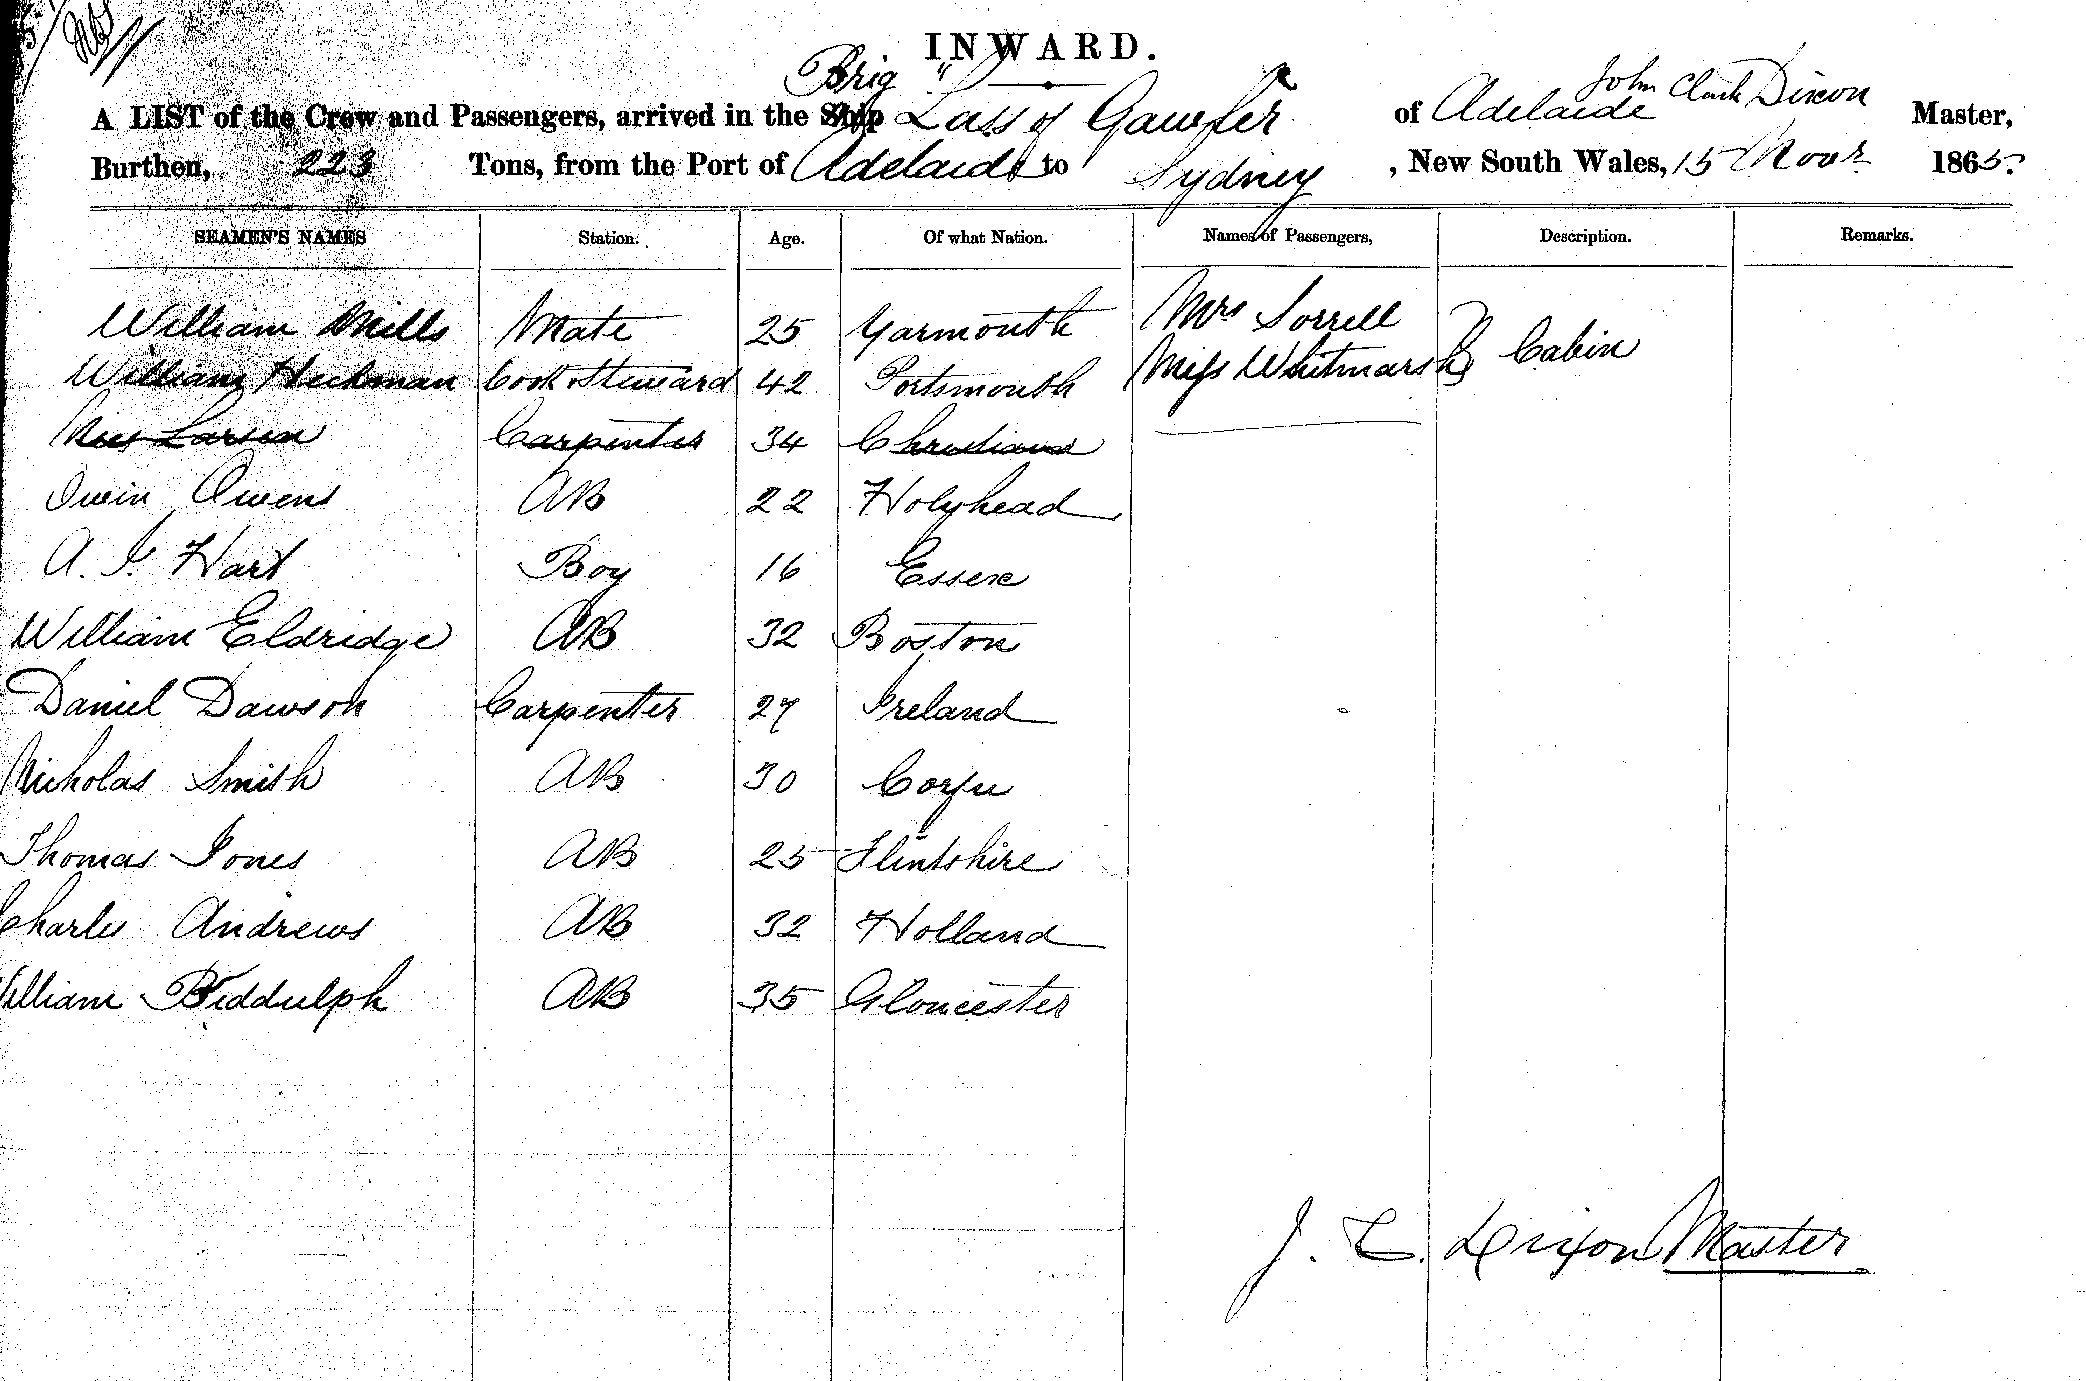 INWARD.
A LIST of the Crew and Passengers, arrived in the Ship Brig "Lass of Gawler of Adelaide John Clark Dixon Master,
Burthen, 223 Tons, from the Port of Adelaide to Sydney, New South Wales, 15 Novr 1865.
SEAMEN'S NAMES Station. Age. Of what Nation. Names of Passengers, Description. Remarks.
William Mills Mate 25 Yarmouth Mrs Sorrell
William Heckman Cook & Steward 42 Portsmouth Miss Whitmarsh Cabin
Larsen Carpenter 34
Owin Owens AB 22 Holyhead
A. J. Hart Boy 16 Essex
William Eldridge AB 32 Boston
Daniel Dawson Carpenter 27 Ireland
Nicholas Smith AB 30 Corfu
Thomas Jones AB 25 Flintshire
Charles Andrews AB 32 Holland
William Biddulph AB 35 Gloucester
J. C. Dixon Master